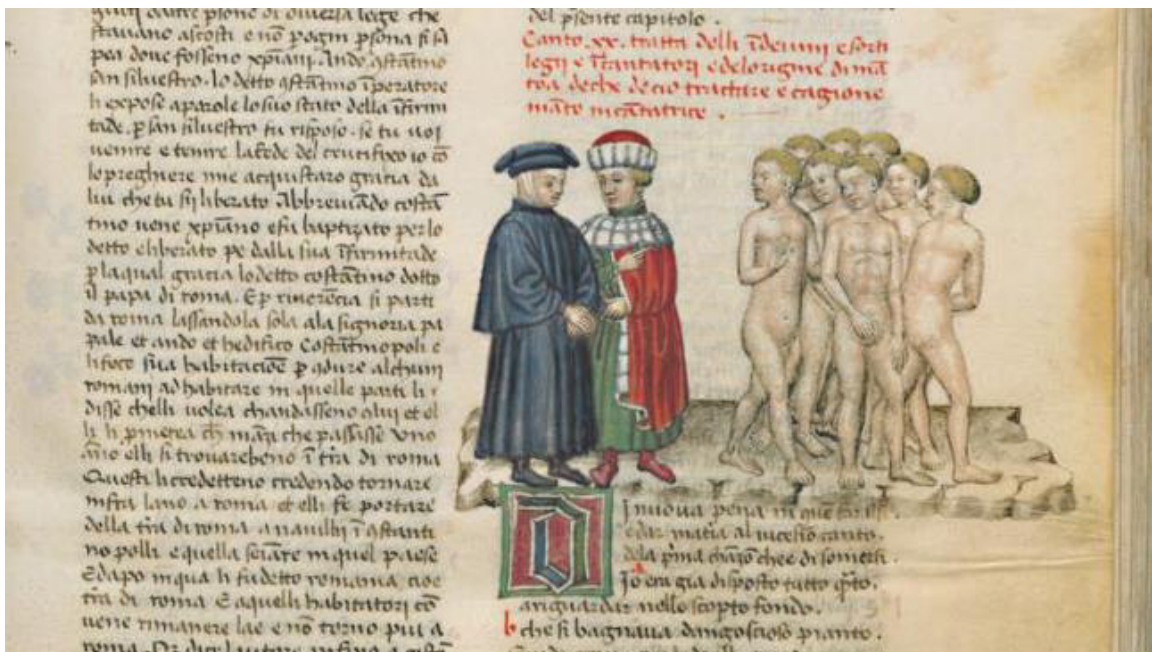 giuti altre psone di diversa lege che
stavano ascosti e nõ p ogni psona si sa
pea dove fosseno xpiani. Ando gstãtino
san silvestro. lo detto gstãtino ĩperatore
li expose a parole lo suo stato della ĩfirm
tade. p san silvestro fu risposo. se tu voi
venire e tenire la fede del crucifixo io cõ
lo preghiere mie acquistaro gratia da
lui che tu sii liberato Abbreviãdo costã
tino vene xpiano e fu baptizato per lo
detto e liberato pe dalla sua ĩfirmitade
p la qual gracia lo detto costãtino dotto
il papa di roma. E p riverẽcia si parti
da roma lassandola sola ala signoria pa
pale et ando et hedifico Costãtinopoli e
li fece sua habitaciõe p gdure alchuni
romani ad habitare in quelle parti li
disse chelli volea chandasseno olui et el
li li pmetea ch mãzi che passasse uno
ãno elli si trovarebeno ĩ tra di roma
Questi li credetteno credendo tornare
infra lano a roma et elli fe portare
della tra di roma a navilli ĩ gstanti
nopolli e quella seiãre in quel paese
E dapo inqua li fu detto romania cioe
tra di roma E aquelli habitatori cõ
vene rimanere lae e nõ torno piu a
roma. Or dice
del psente capitolo.
Canto .xx. tratta delli ĩdevini e sorti
legii e ĩcantatori e delorigine di mã
toa de che de cio tractare e cagione
mãto incãtatrice.
D
I nuova pena
e dar matia al vicesĩo canto.
dela pma chãzõ chee di somersi.
Io era gia disposto tutto qto.
a riguardar nello scopto fondo.
che si bagnava dangoscioso pianto.